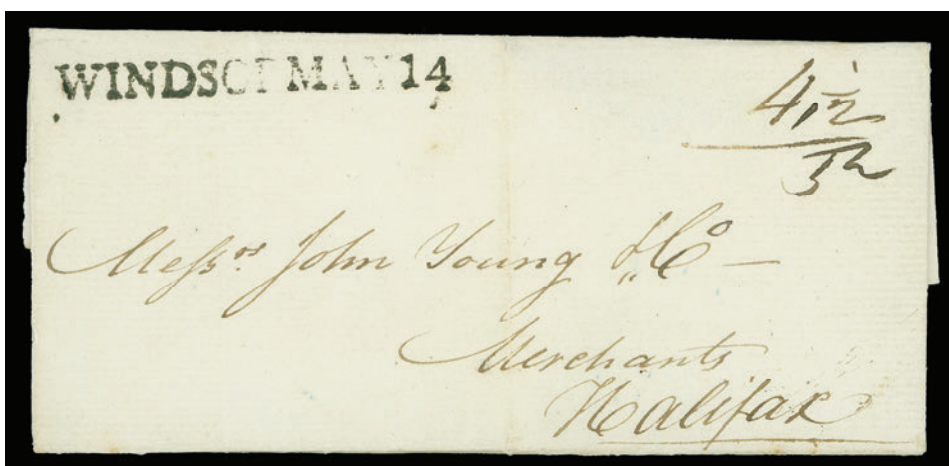 WINDSOR MAY 14
4 1/2
Messrs John Young & Co —
Merchants
Halifax